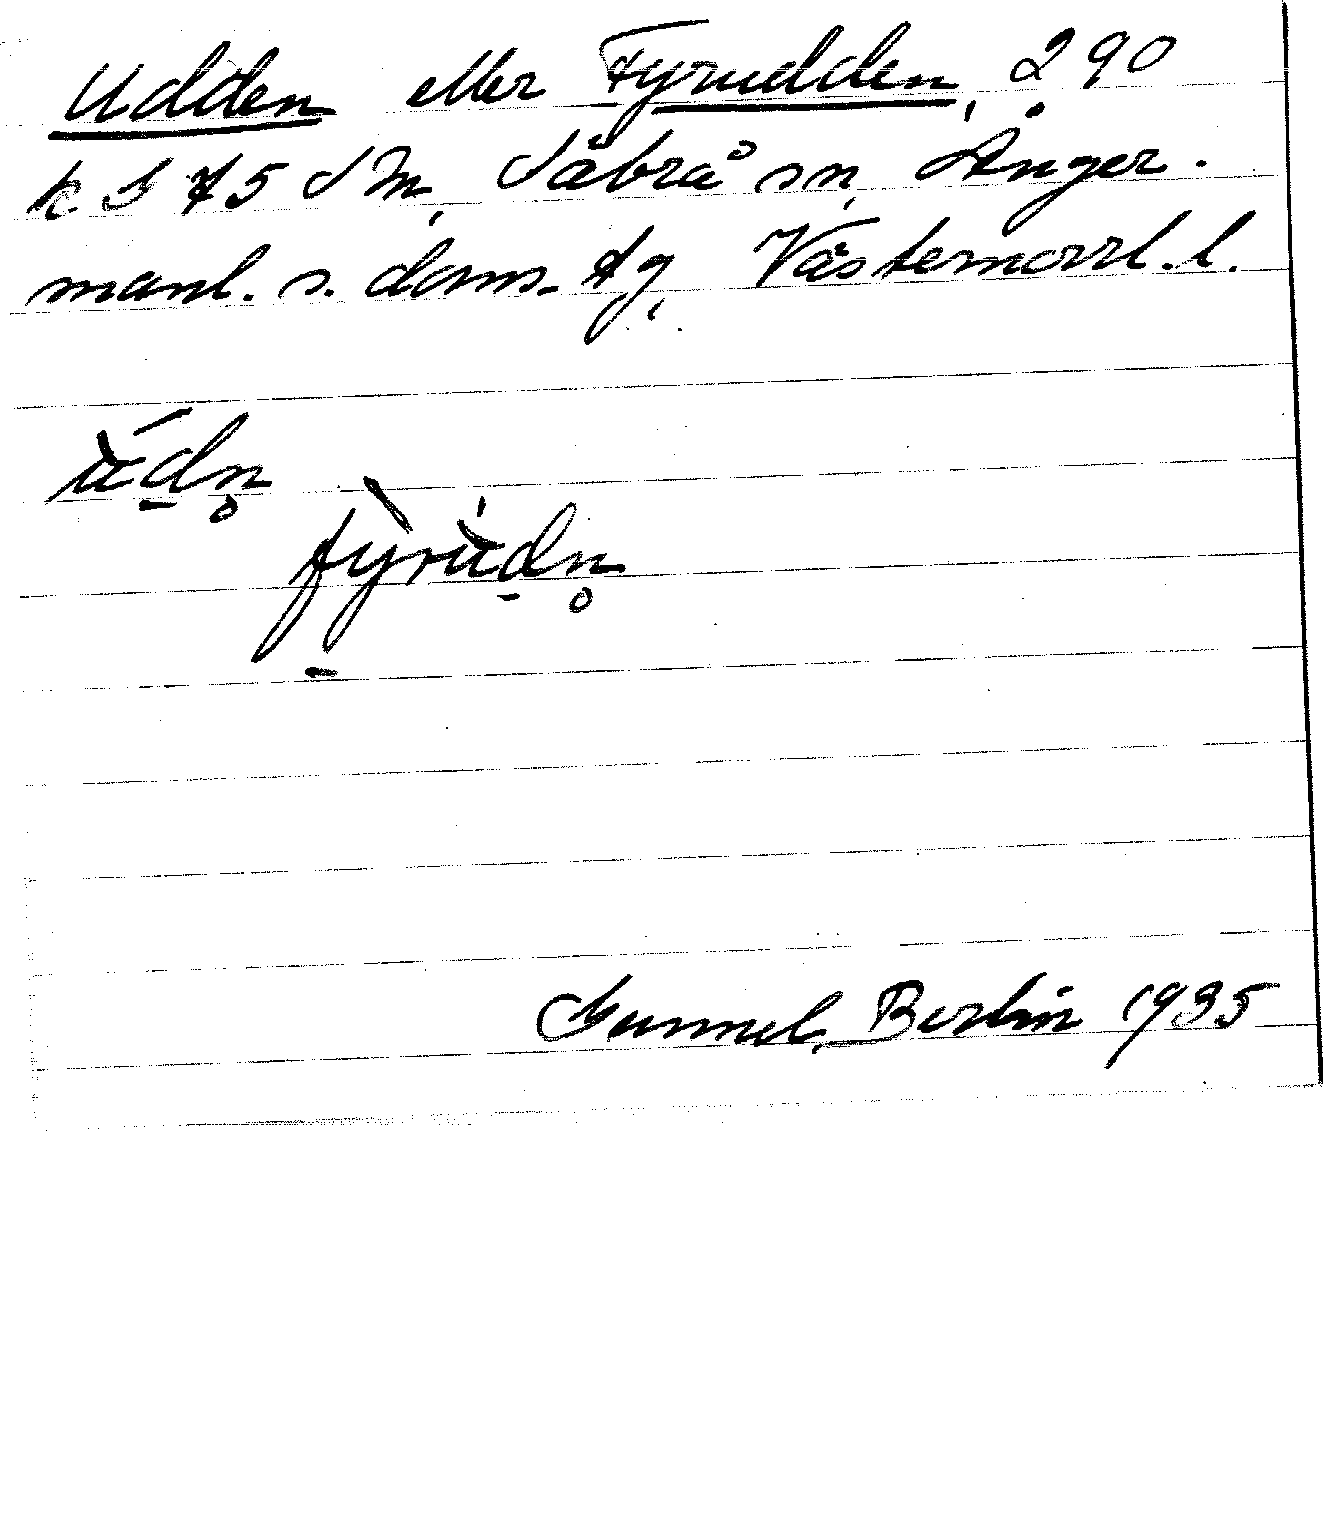 Udden eller Fyrudden, 290
k S 75 SM, Säbrå sn, Ånger-
manl. s. doms. fg, Västernorrl. l.
ùdn̥
fỳrùdn̥
Gunnel Berlin 1935